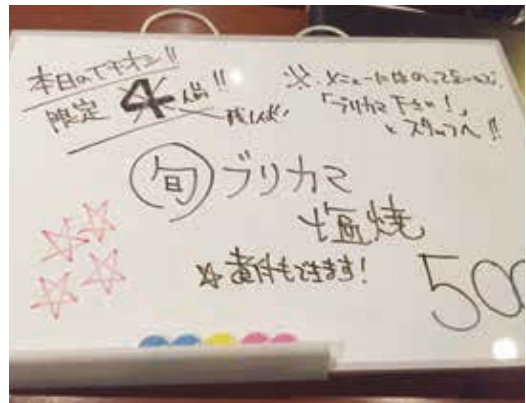 本日のイチオシ!!
限定 4人前!!
残り人前
※ メニューにはのってませんので、
「ブリカマ下さい!」
と スタッフへ!!
旬 ブリカマ
塩焼
☆ 煮付もできます!
500